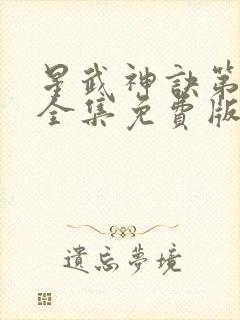 星武神訣第
全集免費版
遺忘夢境